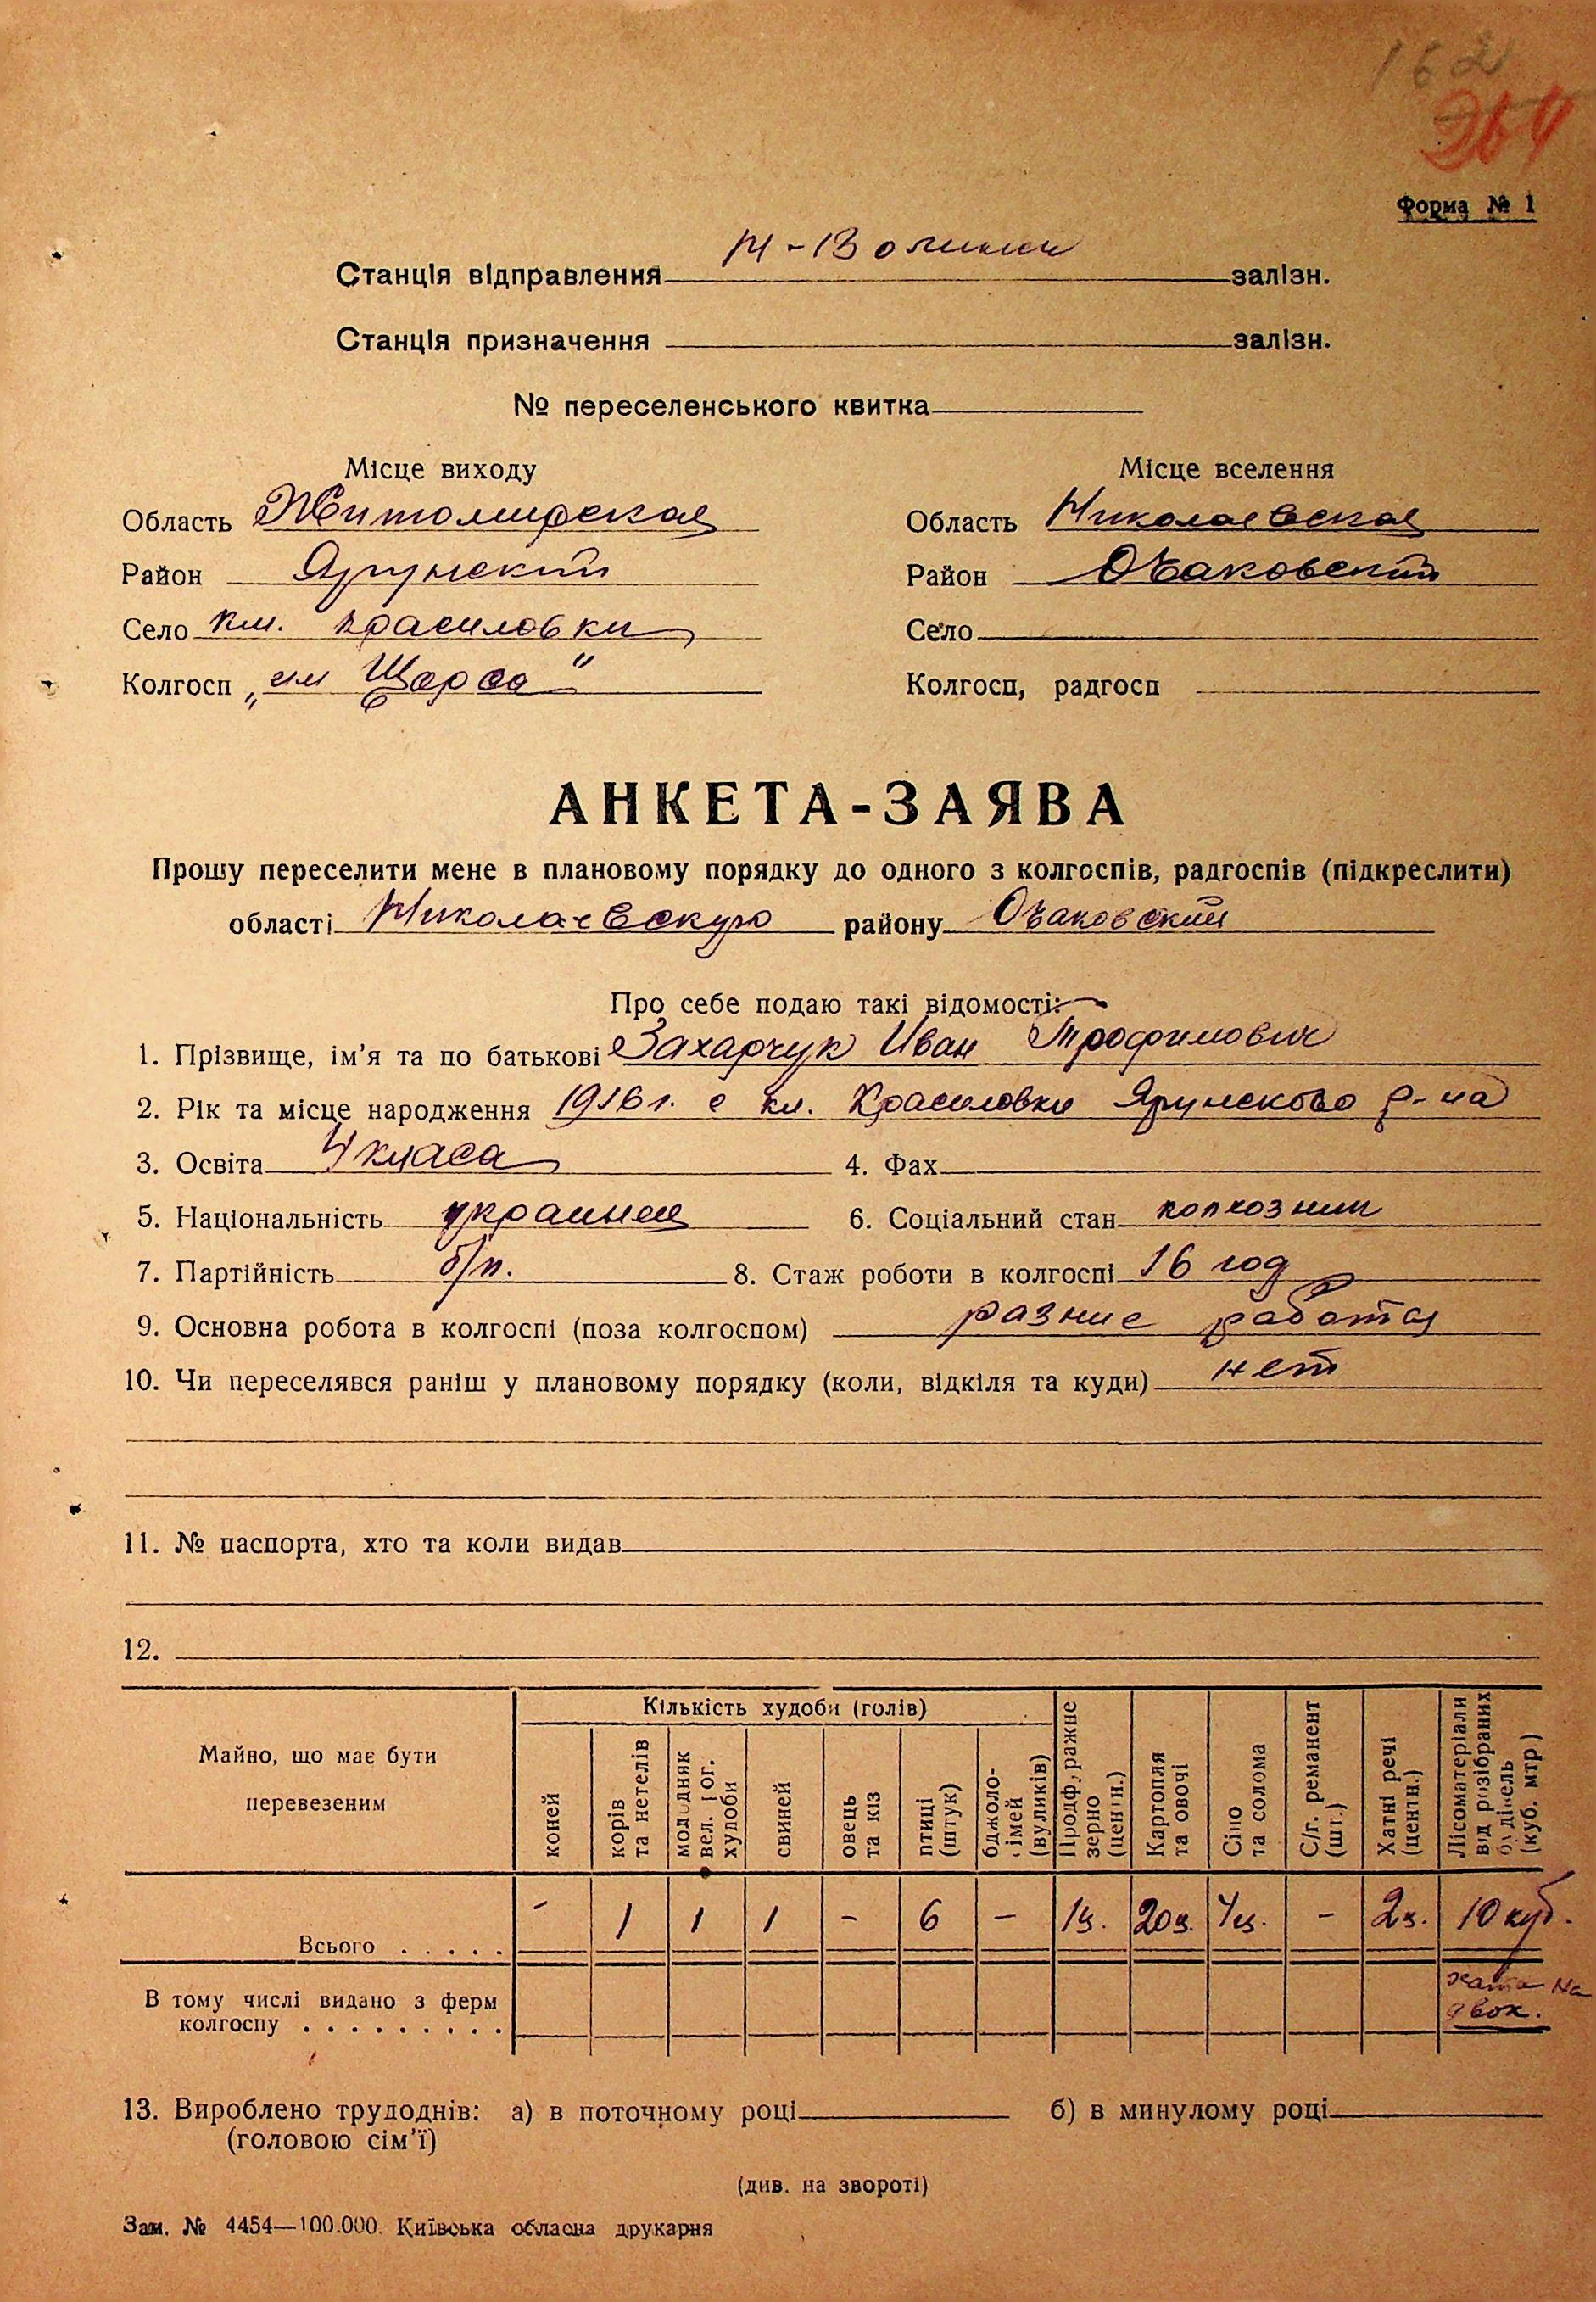 162
264
Форма № 1
Станція відправлення Н-Волинск залізн.
Станція призначення залізн.
№ переселенського квитка
Місце виходу Місце вселення
Область Житомирская Область Николаевская
Район Ярунский Район Очаковский
Село кл. Красиловки Село
Колгосп „им Щорса" Колгосп, радгосп
АНКЕТА-ЗАЯВА
Прошу переселити мене в плановому порядку до одного з колгоспів, радгоспів (підкреслити)
області Николаевскую району Очаковский
Про себе подаю такі відомості:
1. Прізвище, ім'я та по батькові Захарчук Иван Трофимович
2. Рік та місце народження 1916 г. с кл. Красиловки Ярунского р-на
3. Освіта 4 класа 4. Фах
5. Національність украинец 6. Соціальний стан колхозник
7. Партійність б/п. 8. Стаж роботи в колгоспі 16 год
9. Основна робота в колгоспі (поза колгоспом) разние работы
10. Чи переселявся раніш у плановому порядку (коли, відкіля та куди) нет
11. № паспорта, хто та коли видав
12.
Майно, що має бути перевезеним Кількість худоби (голів)
коней корів та нетелів молодняк вел. рог. худоби свиней овець та кіз птиці (штук) бджоло-сімей (вуликів) Продфуражне зерно (центн.) Картопля та овочі Сіно та солома С/г. реманент (шт.) Хатні речі (центн.) Лісоматеріали від розібраних будівель (куб. мтр)
Всього . . . . . - 1 1 1 - 6 - 1ц. 20ц. 4ц. - 2ц. 10 куб.
В тому числі видано з ферм колгоспу . . . . . . . . . хата на